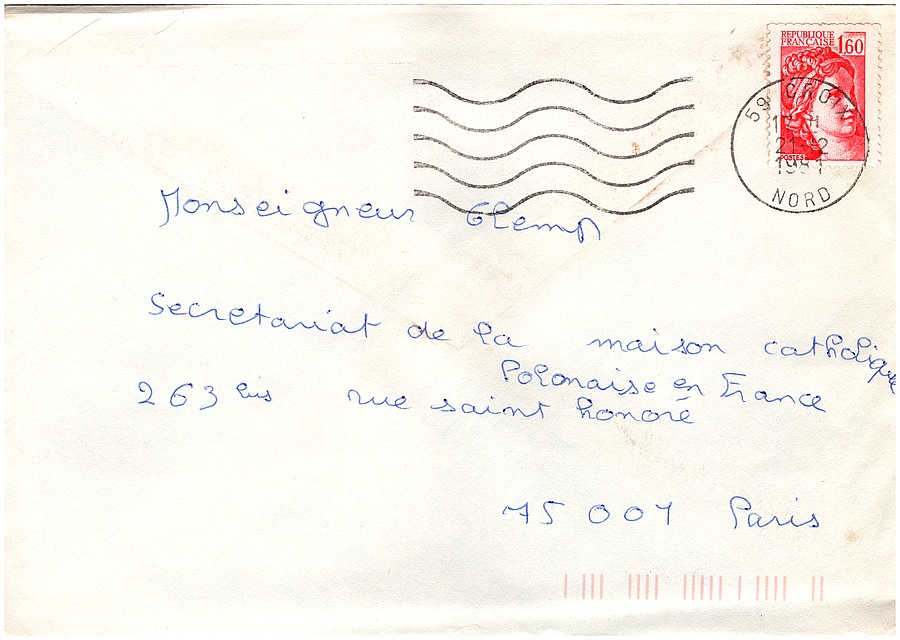 REPUBLIQUE
FRANÇAISE 1,60
POSTES
59 CROIX
17 H
21-12
1981
NORD
Monseigneur Glemp
Secretariat de la maison catholique
Polonaise en France
263 bis rue saint honoré
75 001 Paris